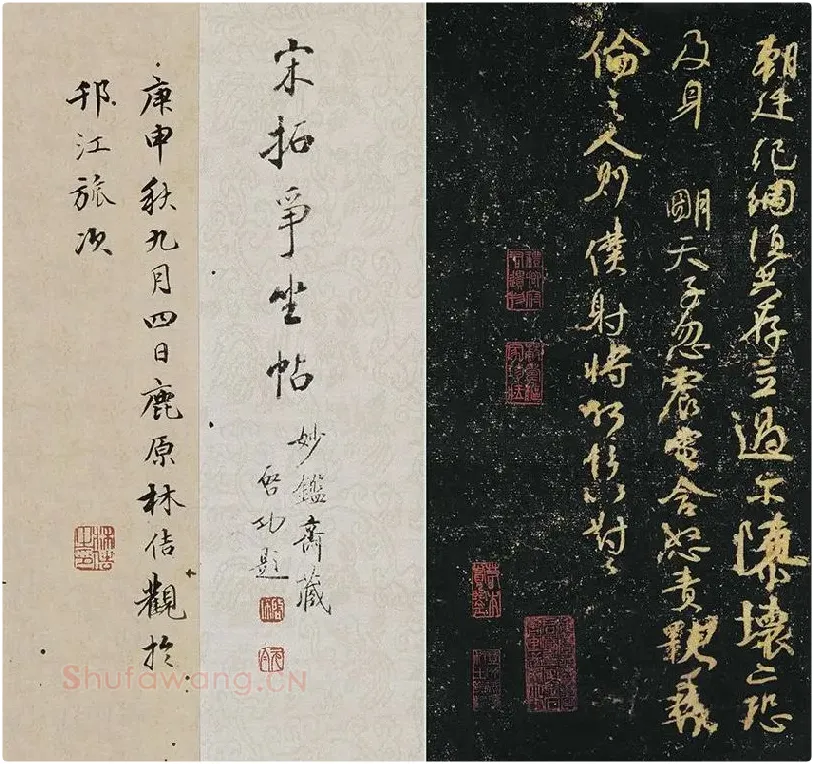 朝廷紀綱須共存立過尔隳壞亦恐
及身 明天子忽震電含怒責斁彝
倫之人則僕射將何辞以對
宋拓爭坐帖
妙鑑齋藏
启功題
庚申秋九月四日鹿原林佶觀於
邗江旅次
Shufawang.CN